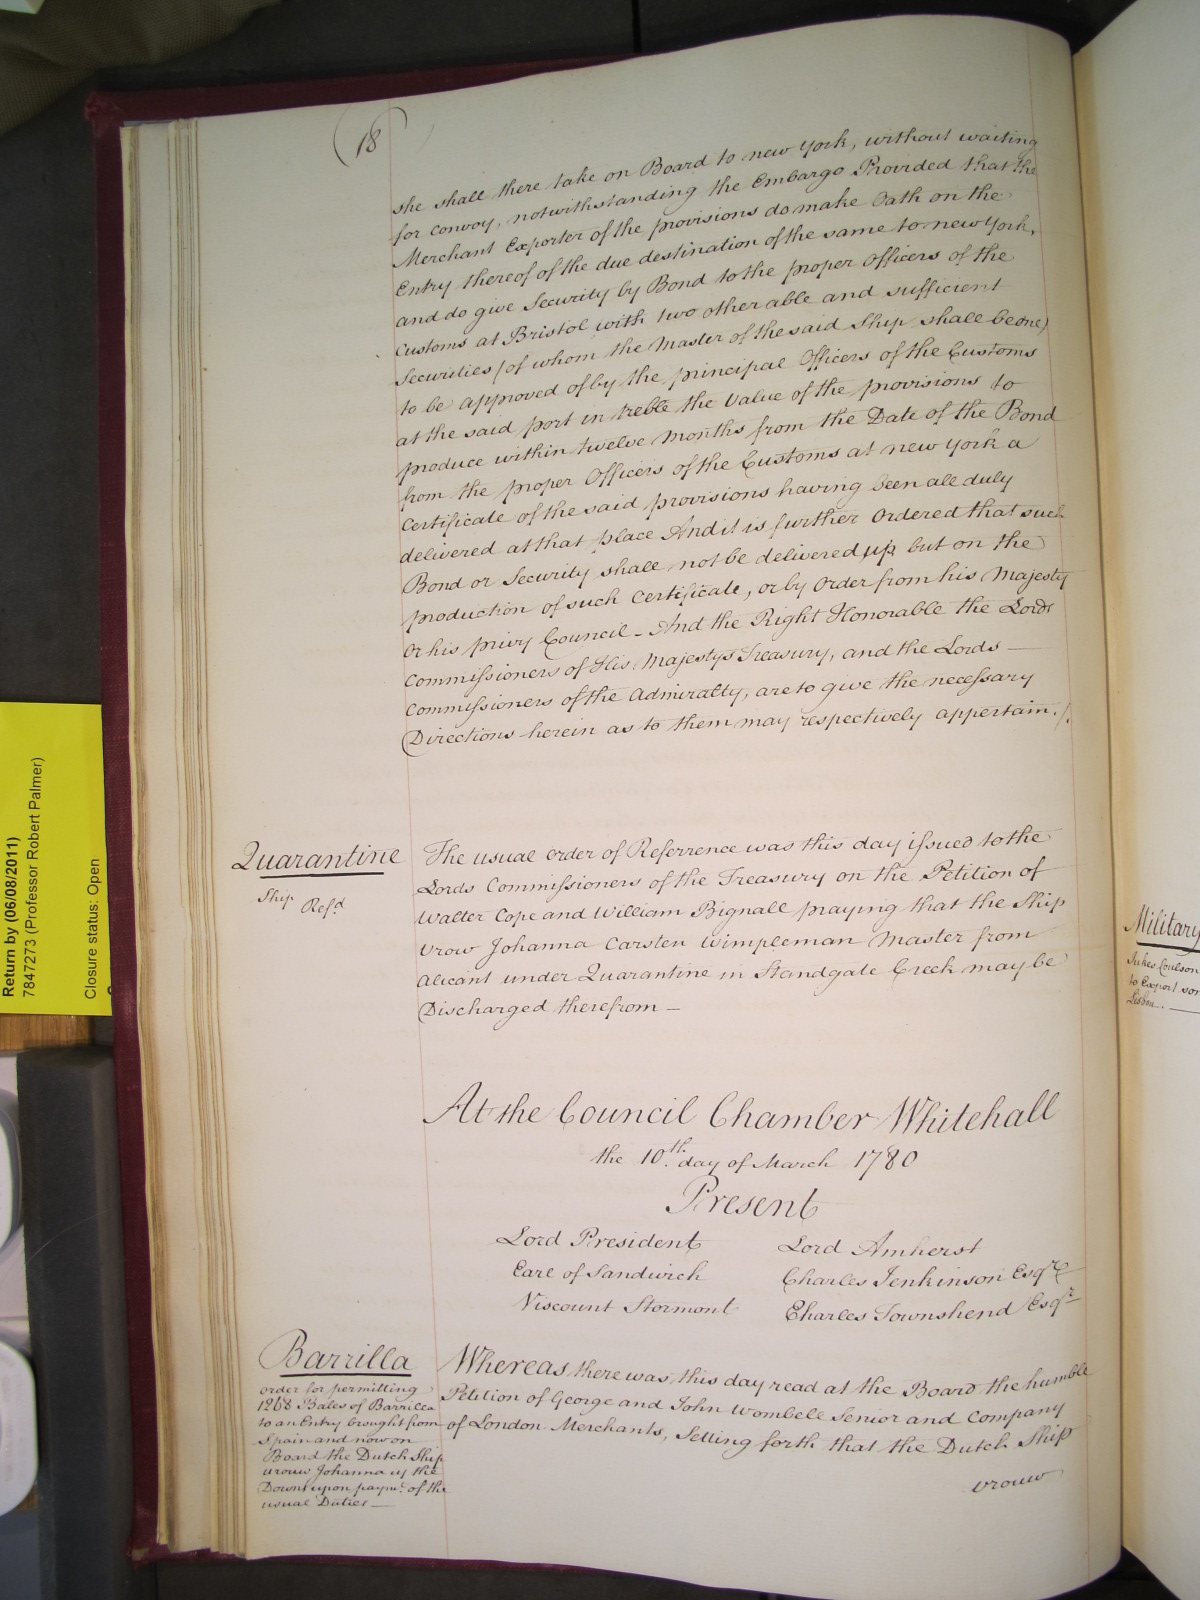 18
she shall there take on Board to new York, without waiting
for convoy, notwithstanding the Embargo Provided that the
Merchant Exporter of the provisions do make Oath on the
Entry thereof of the due destination of the same to new York,
and do give Security by Bond to the proper Officers of the
Customs at Bristol with two other able and sufficient
Securities (of whom the Master of the said Ship shall be one)
to be approved of by the principal Officers of the Customs
at the said port in treble the Value of the provisions to
produce within twelve Months from the Date of the Bond
from the proper Officers of the Customs at new York a
Certificate of the said provisions having been all duly
delivered at that place And it is further Ordered that such
Bond or Security shall not be delivered up but on the
production of such Certificate, or by Order from his Majesty
or his privy Council - And the Right Honorable the Lords
Commissioners of His Majestys Treasury, and the Lords —
Commissioners of the Admiralty, are to give the necessary
Directions herein as to them may respectively appertain ./.
Quarantine
Ship Refd
The usual Order of Referrence was this day issued to the
Lords Commissioners of the Treasury on the Petition of
Walter Cope and William Bignall praying that the Ship
Vrow Johanna Carsten Wimpleman Master from
Alicant under Quarantine in Standgate Creek may be
Discharged therefrom —
At the Council Chamber Whitehall
the 10th. day of March 1780
Present
Lord President Lord Amherst
Earl of Sandwich Charles Jenkinson Esqre
Viscount Stormont Charles Townshend Esqr
Barrilla
order for permitting
1268 Bales of Barrilla
to an Entry brought from
Spain and now on
Board the Dutch Ship
vrouw Johanna in the
Downs upon paymt. of the
usual Duties —
Whereas there was this day read at the Board the humble
Petition of George and John Wombell Senior and Company
of London Merchants, Setting forth that the Dutch Ship
vrouw
Return by (06/08/2011)
7847273 (Professor Robert Palmer)
Closure status: Open
Military
Jukes Coulson
to Export
Lisbon. —